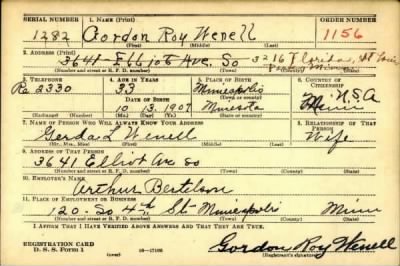 SERIAL NUMBER 1. NAME (Print) ORDER NUMBER
1282 Gordon Roy Wenell 1156
(First) (Middle) (Last)
2. ADDRESS (Print)
3641 - Elliot Ave. So 3216 Florida, St Louis
Park Minn
(Number and street or R. F. D. number) (Town) (County) (State)
3. TELEPHONE 4. AGE IN YEARS 5. PLACE OF BIRTH 6. COUNTRY OF CITIZENSHIP
Ra 2330 33 Minneapolis U.S.A
DATE OF BIRTH (Town or county)
10 13 1907 Minnesota
(Exchange) (Number) (Mo.) (Day) (Yr.) (State or country)
7. NAME OF PERSON WHO WILL ALWAYS KNOW YOUR ADDRESS 8. RELATIONSHIP OF THAT PERSON
Gerda L Wenell Wife
(Mr., Mrs., Miss) (First) (Middle) (Last)
9. ADDRESS OF THAT PERSON
3641 Elliot Ave So
(Number and street or R. F. D. number) (Town) (County) (State)
10. EMPLOYER'S NAME
Arthur Bertelson
11. PLACE OF EMPLOYMENT OR BUSINESS
120 - So 4th St - Minneapolis Minn
(Number and street or R. F. D. number) (Town) (County) (State)
I AFFIRM THAT I HAVE VERIFIED ABOVE ANSWERS AND THAT THEY ARE TRUE.
REGISTRATION CARD
D. S. S. Form 1 (over) Gordon Roy Wenell
(Registrant's signature)